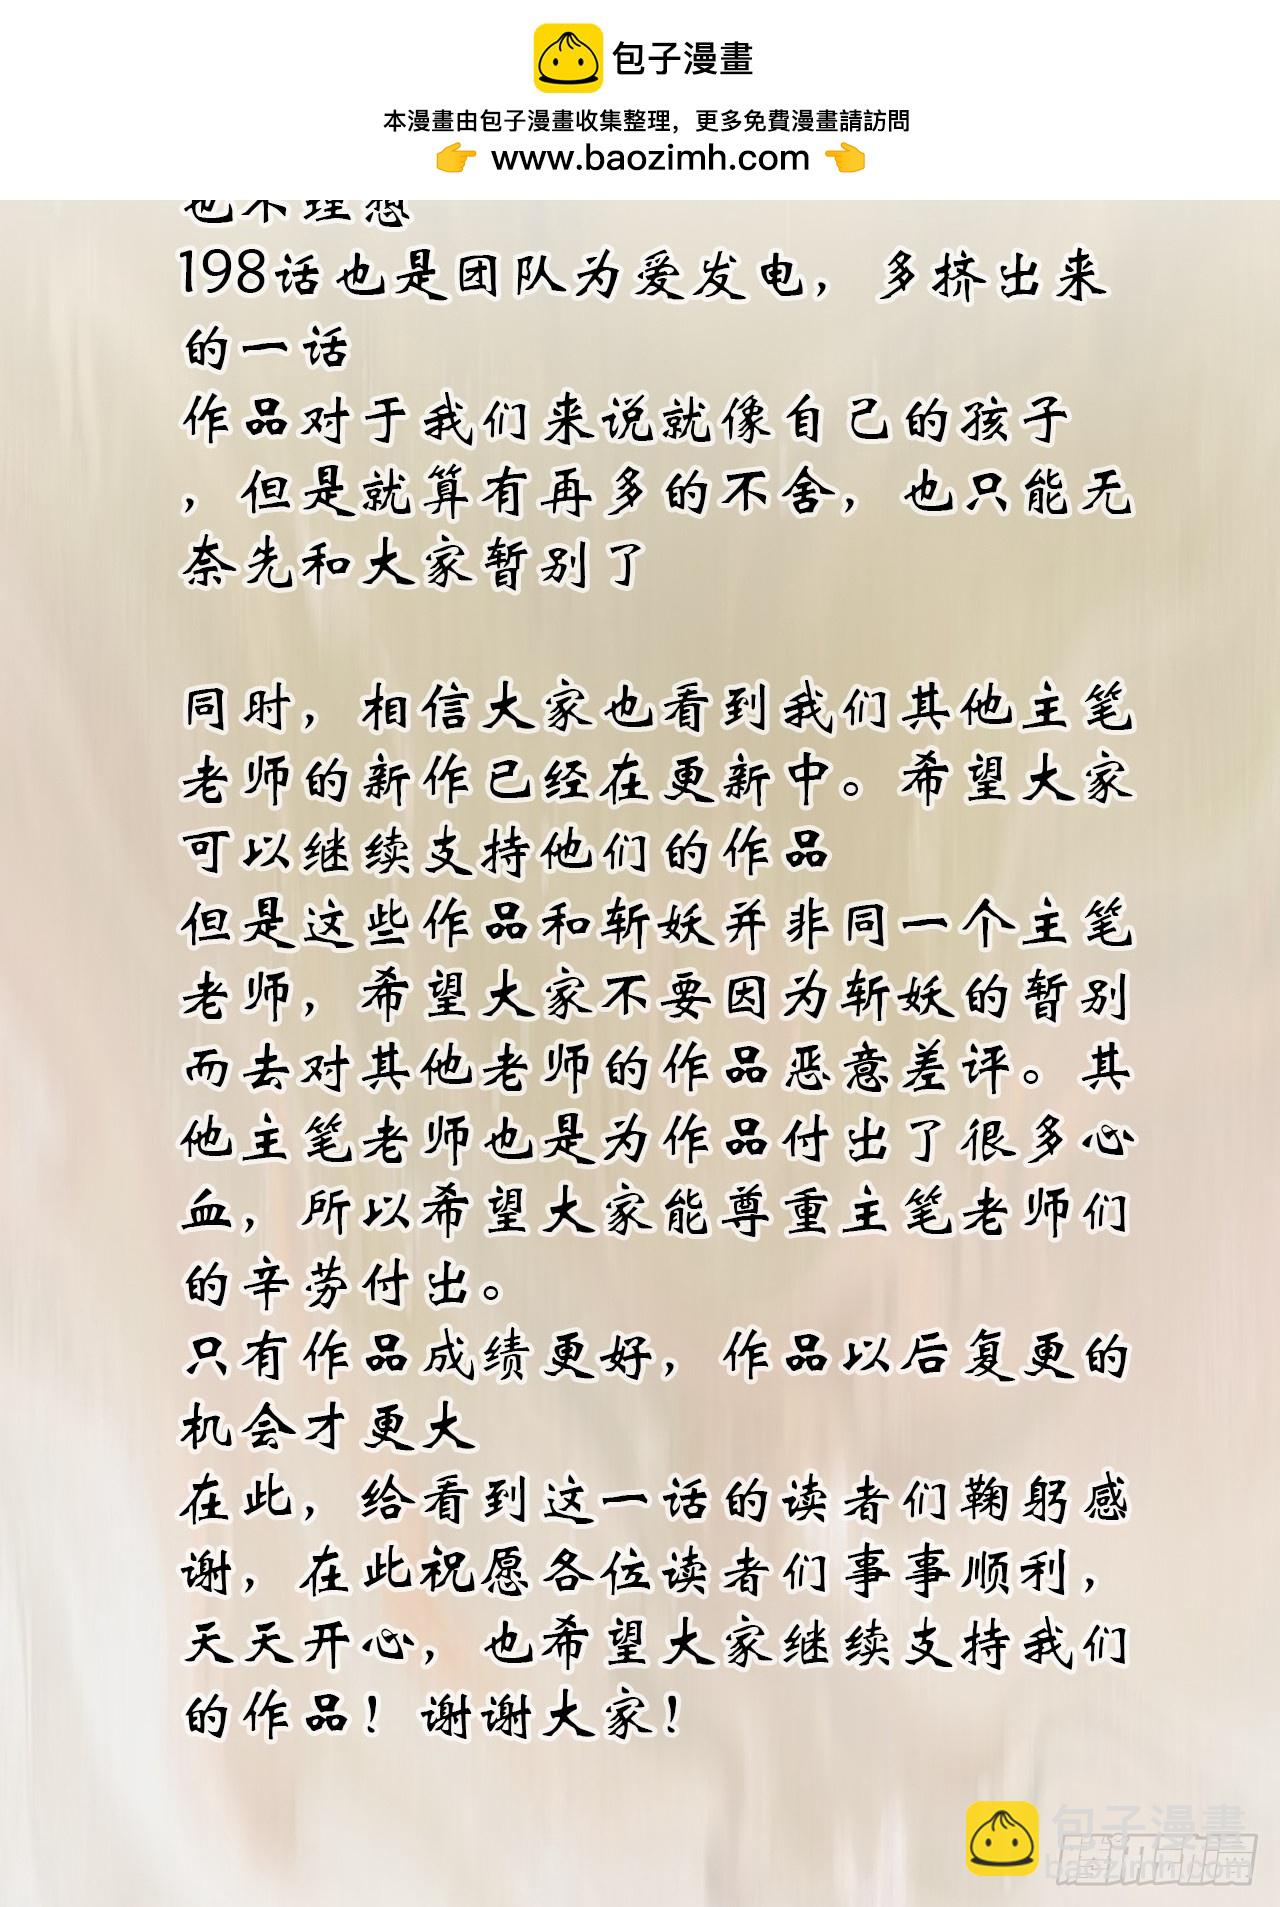 包子漫畫
本漫畫由包子漫畫收集整理，更多免費漫畫請訪問
👉 www.baozimh.com 👈
也不理想
198话也是团队为爱发电，多挤出来
的一话
作品对于我们来说就像自己的孩子
，但是就算有再多的不舍，也只能无
奈先和大家暂别了
同时，相信大家也看到我们其他主笔
老师的新作已经在更新中。希望大家
可以继续支持他们的作品
但是这些作品和斩妖并非同一个主笔
老师，希望大家不要因为斩妖的暂别
而去对其他老师的作品恶意差评。其
他主笔老师也是为作品付出了很多心
血，所以希望大家能尊重主笔老师们
的辛劳付出。
只有作品成绩更好，作品以后复更的
机会才更大
在此，给看到这一话的读者们鞠躬感
谢，在此祝愿各位读者们事事顺利，
天天开心，也希望大家继续支持我们
的作品！谢谢大家！
包子漫畫
baozimh.com
腾讯动漫